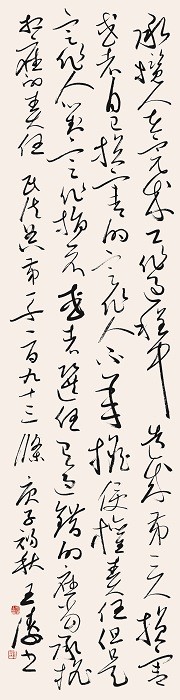 承攬人在完成工作過程中造成第三人損害
或者自己損害的定作人不承擔侵權責任但是
定作人對定作指示或者選任有過錯的應當承擔
相應的責任 民法典第一千一百九十三條 庚子初秋 王